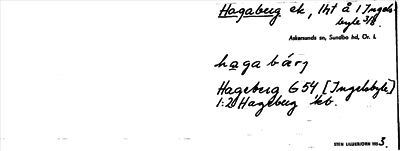 Hagaberg ek, 1 ht å 1 Ingels-
byle 3/8.
Askersunds sn, Sundbo hd, Ör. l.
hagabärj
Hageberg G54 [Ingelsbyle]
1:20 Hageberg kb.
STEN LILLIEBJÖRN 1935 3.